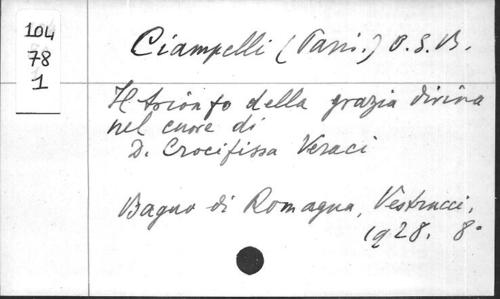 104
78
1
Ciampelli (Paris.) O.S.B.
Il trionfo della grazia divina
nel cuore di
D. Crocifissa Veraci
Bagno di Romagna, Vestrucci,
1928. 8°